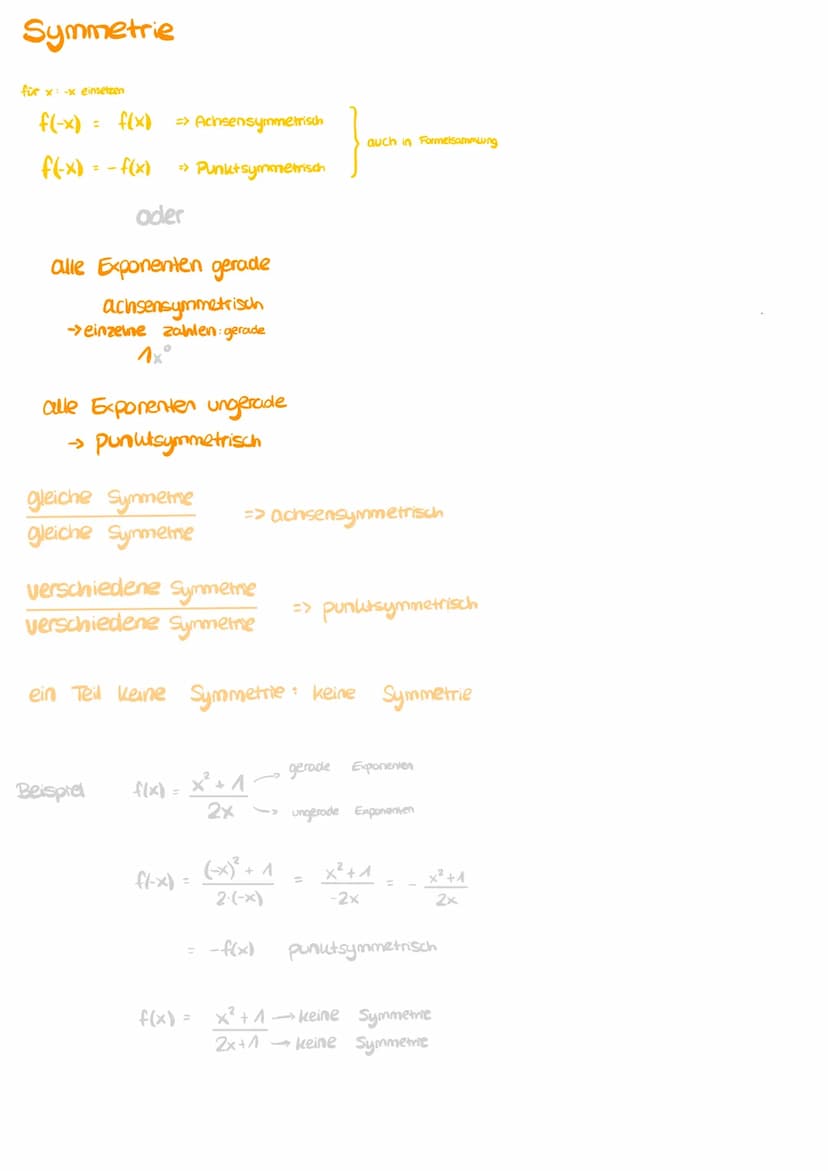 Symmetrie
für x : -x einsetzen
f(-x) = f(x) => Achsensymmetrisch
auch in Formelsammlung
f(-x) = - f(x) => Punktsymmetrisch
oder
alle Exponenten gerade
achsensymmetrisch
→ einzelne zahlen : gerade
1x⁰
alle Exponenten ungerade
→ punktsymmetrisch
gleiche Symmetrie
gleiche Symmetrie => achsensymmetrisch
verschiedene Symmetrie
verschiedene Symmetrie => punktsymmetrisch
ein Teil keine Symmetrie : keine Symmetrie
Beispiel f(x) = (x² + 1)/(2x) → gerade Exponenten
→ ungerade Exponenten
f(-x) = ((-x)² + 1)/(2·(-x)) = (x² + 1)/(-2x) = - (x² + 1)/(2x)
= -f(x) punktsymmetrisch
f(x) = x² + 1 → keine Symmetrie
2x + 1 → keine Symmetrie